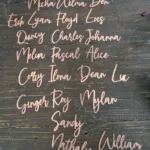 Micha Wilma Ben
Esih Lyam Floyd Loes
Quincy Charles Johanna
Milan Pascal Alice
Cathy Ilona Dean Luc
Ginger Roy Mylan
Sandy
Nathalie William